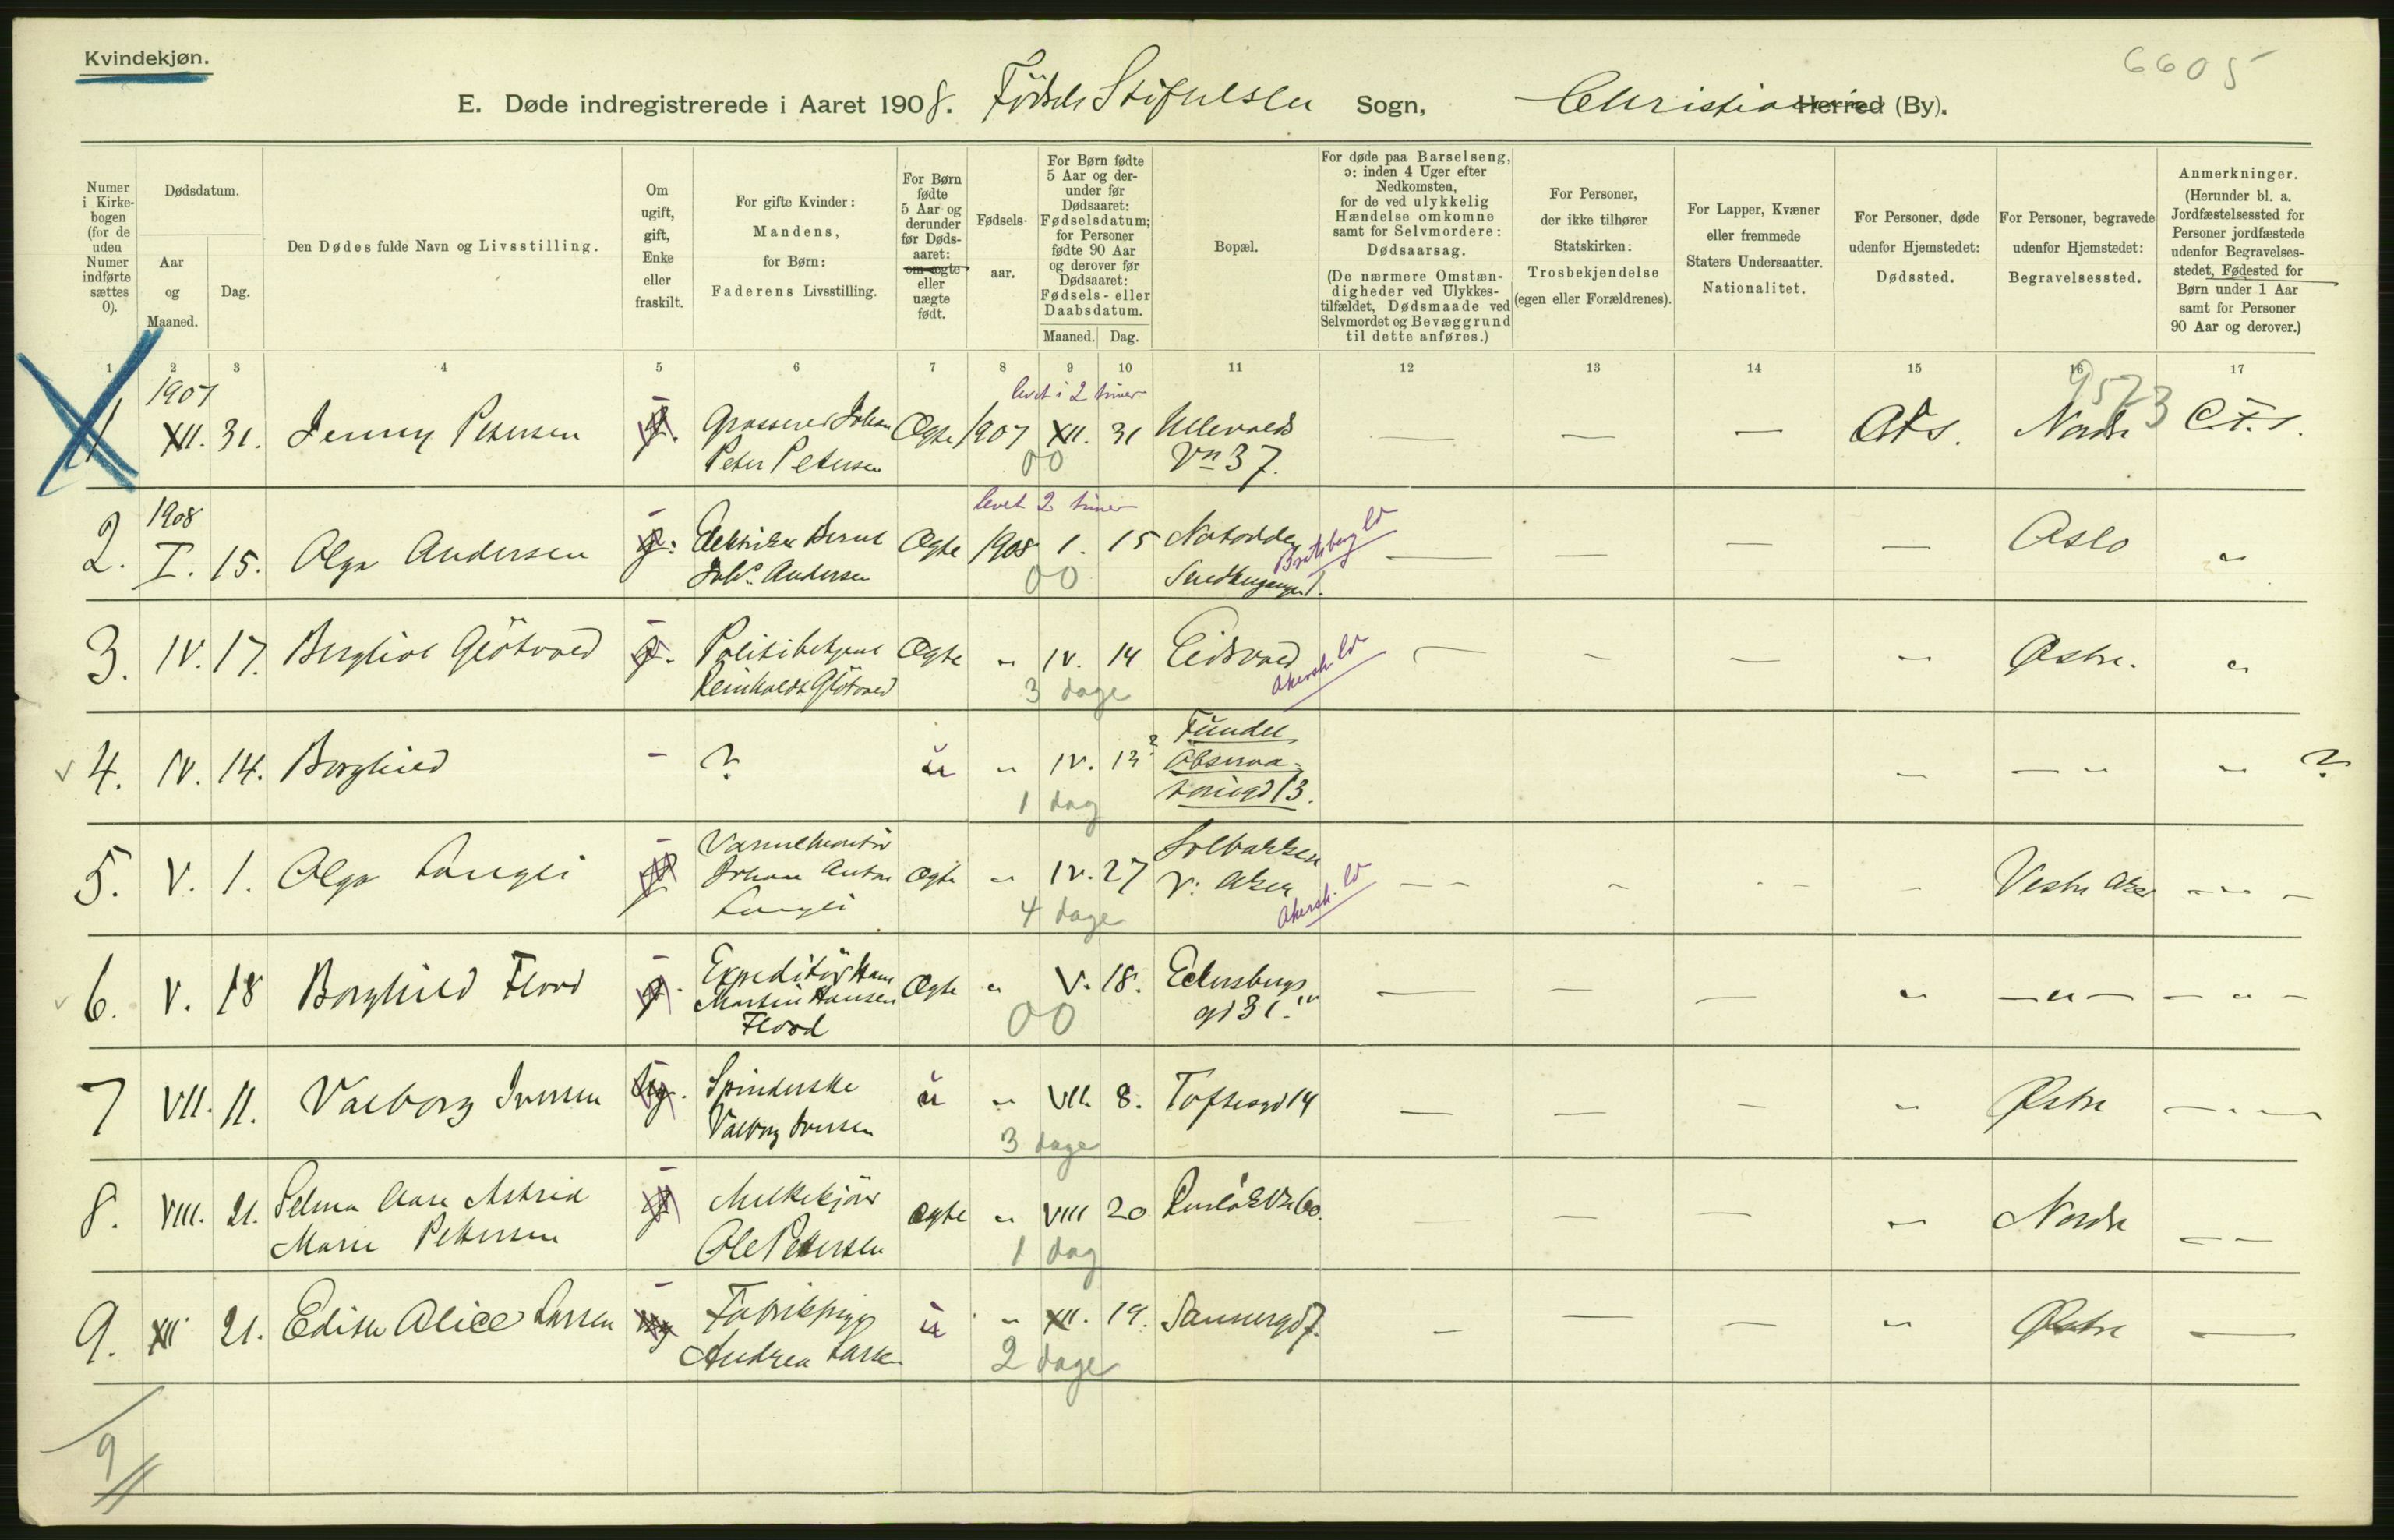 Kvindekjøn.
6605
E. Døde indregistrerede i Aaret 1908. Fødsels Stiftelsen Sogn, Christiania Herred (By).
Numer i Kirke-bogen (for de uden Numer indførte sættes 0).
Dødsdatum.
Aar og Maaned.
Dag.
Den Dødes fulde Navn og Livsstilling.
Om ugift, gift, Enke eller fraskilt.
For gifte Kvinder: Mandens, for Børn: Faderens Livsstilling.
For Børn fødte 5 Aar og derunder før Døds-aaret: om ægte eller uægte født.
Fødsels-aar.
For Børn fødte 5 Aar og der-under før Dødsaaret: Fødselsdatum; for Personer fødte 90 Aar og derover før Dødsaaret: Fødsels- eller Daabsdatum.
Maaned. Dag.
Bopæl.
For døde paa Barselseng, ɔ: inden 4 Uger efter Nedkomsten, for de ved ulykkelig Hændelse omkomne samt for Selvmordere: Dødsaarsag.
(De nærmere Omstæn-digheder ved Ulykkes-tilfældet, Dødsmaade ved Selvmordet og Bevæggrund til dette anføres.)
For Personer, der ikke tilhører Statskirken: Trosbekjendelse (egen eller Forældrenes).
For Lapper, Kvæner eller fremmede Staters Undersaatter. Nationalitet.
For Personer, døde udenfor Hjemstedet: Dødssted.
For Personer, begravede udenfor Hjemstedet: Begravelsessted.
Anmerkninger.
(Herunder bl. a. Jordfæstelsessted for Personer jordfæstede udenfor Begravelses-stedet, Fødested for Børn under 1 Aar samt for Personer 90 Aar og derover.)
1 2 3 4 5 6 7 8 9 10 11 12 13 14 15 16 17
9573
1907 levet i 2 timer
1 XII. 31. Jenny Petersen Grosserer Johan Peter Petersen Ægte 1907 XII. 31 Ullevolds Vn 37. — — — Nordre
00
1908 levet 2 timer
2. I. 15. Olga Andersen Elektriker Bernt Johs. Andersen Ægte 1908 1. 15 Notodden Bratsberg — — — — Oslo "
00
3. IV. 17. Bergliot Glötvold Politibetjent Reinholdt Glötvold Ægte " IV. 14 Eidsvold Akersh. — — — " Østre. "
3 dage
4. IV. 14. Borghild - ? u " IV. 13? Fundet Observatoriegd 13. — — " " ?
1 dag
5. V. 1. Olga Langli Varmemontör Johan Anton Langli ægte " IV. 27 Solbakken V. Aker Akersh. — — - - - - - Vestre Aker - " -
4 dage
6. V. 18 Borghild Flood Expeditör Hans Martin Hansen Flood Ægte " V. 18. Eilersbergs gd 31. IV — — — " — " — - " -
00
7 VII. 11. Valborg Iversen Ug. Spinderske Valborg Iversen u " VII. 8. Toftesgd 14 — — — " Østre — " —
3 dage
8. VIII. 21. Selma Aase Astrid Marie Pettersen Melkekjörer Ole Pettersen ægte " VIII 20 Ruslökvn 60. — — " Nordre — —
1 dag
9. XII 21. Edith Alice Larsen Fabrikpige Andrea Larsen u " XII. 19. Sannergd 7. — — — " Østre —
2 dage
9